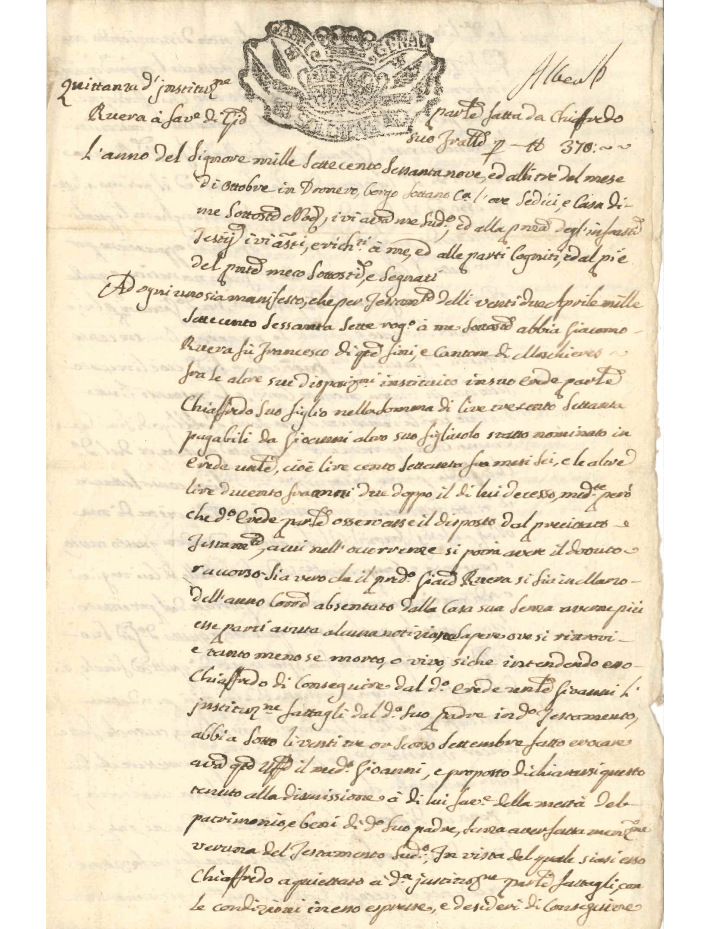 Alberti
Quittanza d'instituz.ne
Ruera à fav.e di Gio
parte fatta da Chiaffredo
suo Fratello p ~ tt 370:~~
L'anno del Signore mille settecento sessanta nove, ed alli tre del mese
di Ottobre in Dronero, borgo sottano C.a l'ore sedici, e Casa di
me sottos.to Nod.o, ivi avanti me sud.o, ed alla p.nza degl'infras.ti
Testij ivi asti, e rich.ti à me, ed alle parti Cogniti, ed al pie
del p.nte meco sottos.ti, e segnati
Ad ogni uno sia manifesto, che per Testam.to delli venti due Aprile mille
settecento sessanta sette rog.o à me sottos.to abbia Giacomo
Ruera fù Francesco di q.ti fini, e Cantone di Moschieres
fra le altre sue disposiz.ni instituito in suo Erede part.e
Chiaffredo suo figlio nella somma di lire trecento settanta
pagabili da Giovanni altro suo figliuolo statto nominato in
Erede univ.le, cioè lire cento settanta fra mesi sei, e le altre
lire ducento fra anni due doppo il di lui decesso, med.te però
che d.o Erede part.e osservasse il disposto dal precitato
Testam.to, a cui nell'occorrenze si potrà avere il dovuto
raccorso. Sia vero che il pred.o Giac.o Ruera si sia in Marzo
dell'anno Corr.te absentato dalla Casa sua senza averne più
esse parti avuta alcuna notizia, e sapere ove si ritrovi
e tanto meno se morto, o vivo, siche intendendo esso
Chiaffredo di Conseguire dal d.o Erede univ.le Giovanni l'
instituz.ne fattagli dal d.o suo Padre in d.o Testamento,
abbia sotto li venti tre or scorso settembre fatto evocare
avanti q.to Uff.o il med.o Giovanni, e proposto dichiararsi questo
tenuto alla dimissione à di lui fav.e della mettà del
patrimonio, e beni di d.o suo padre, senza aver fatta menz.ne
veruna del Testamento sud.o, In vista del quale siasi esso
Chiaffredo acquiettato à d.a instituz.ne part.e fattagli, con
le condizioni in esso espresse, e desideri di Conseguire